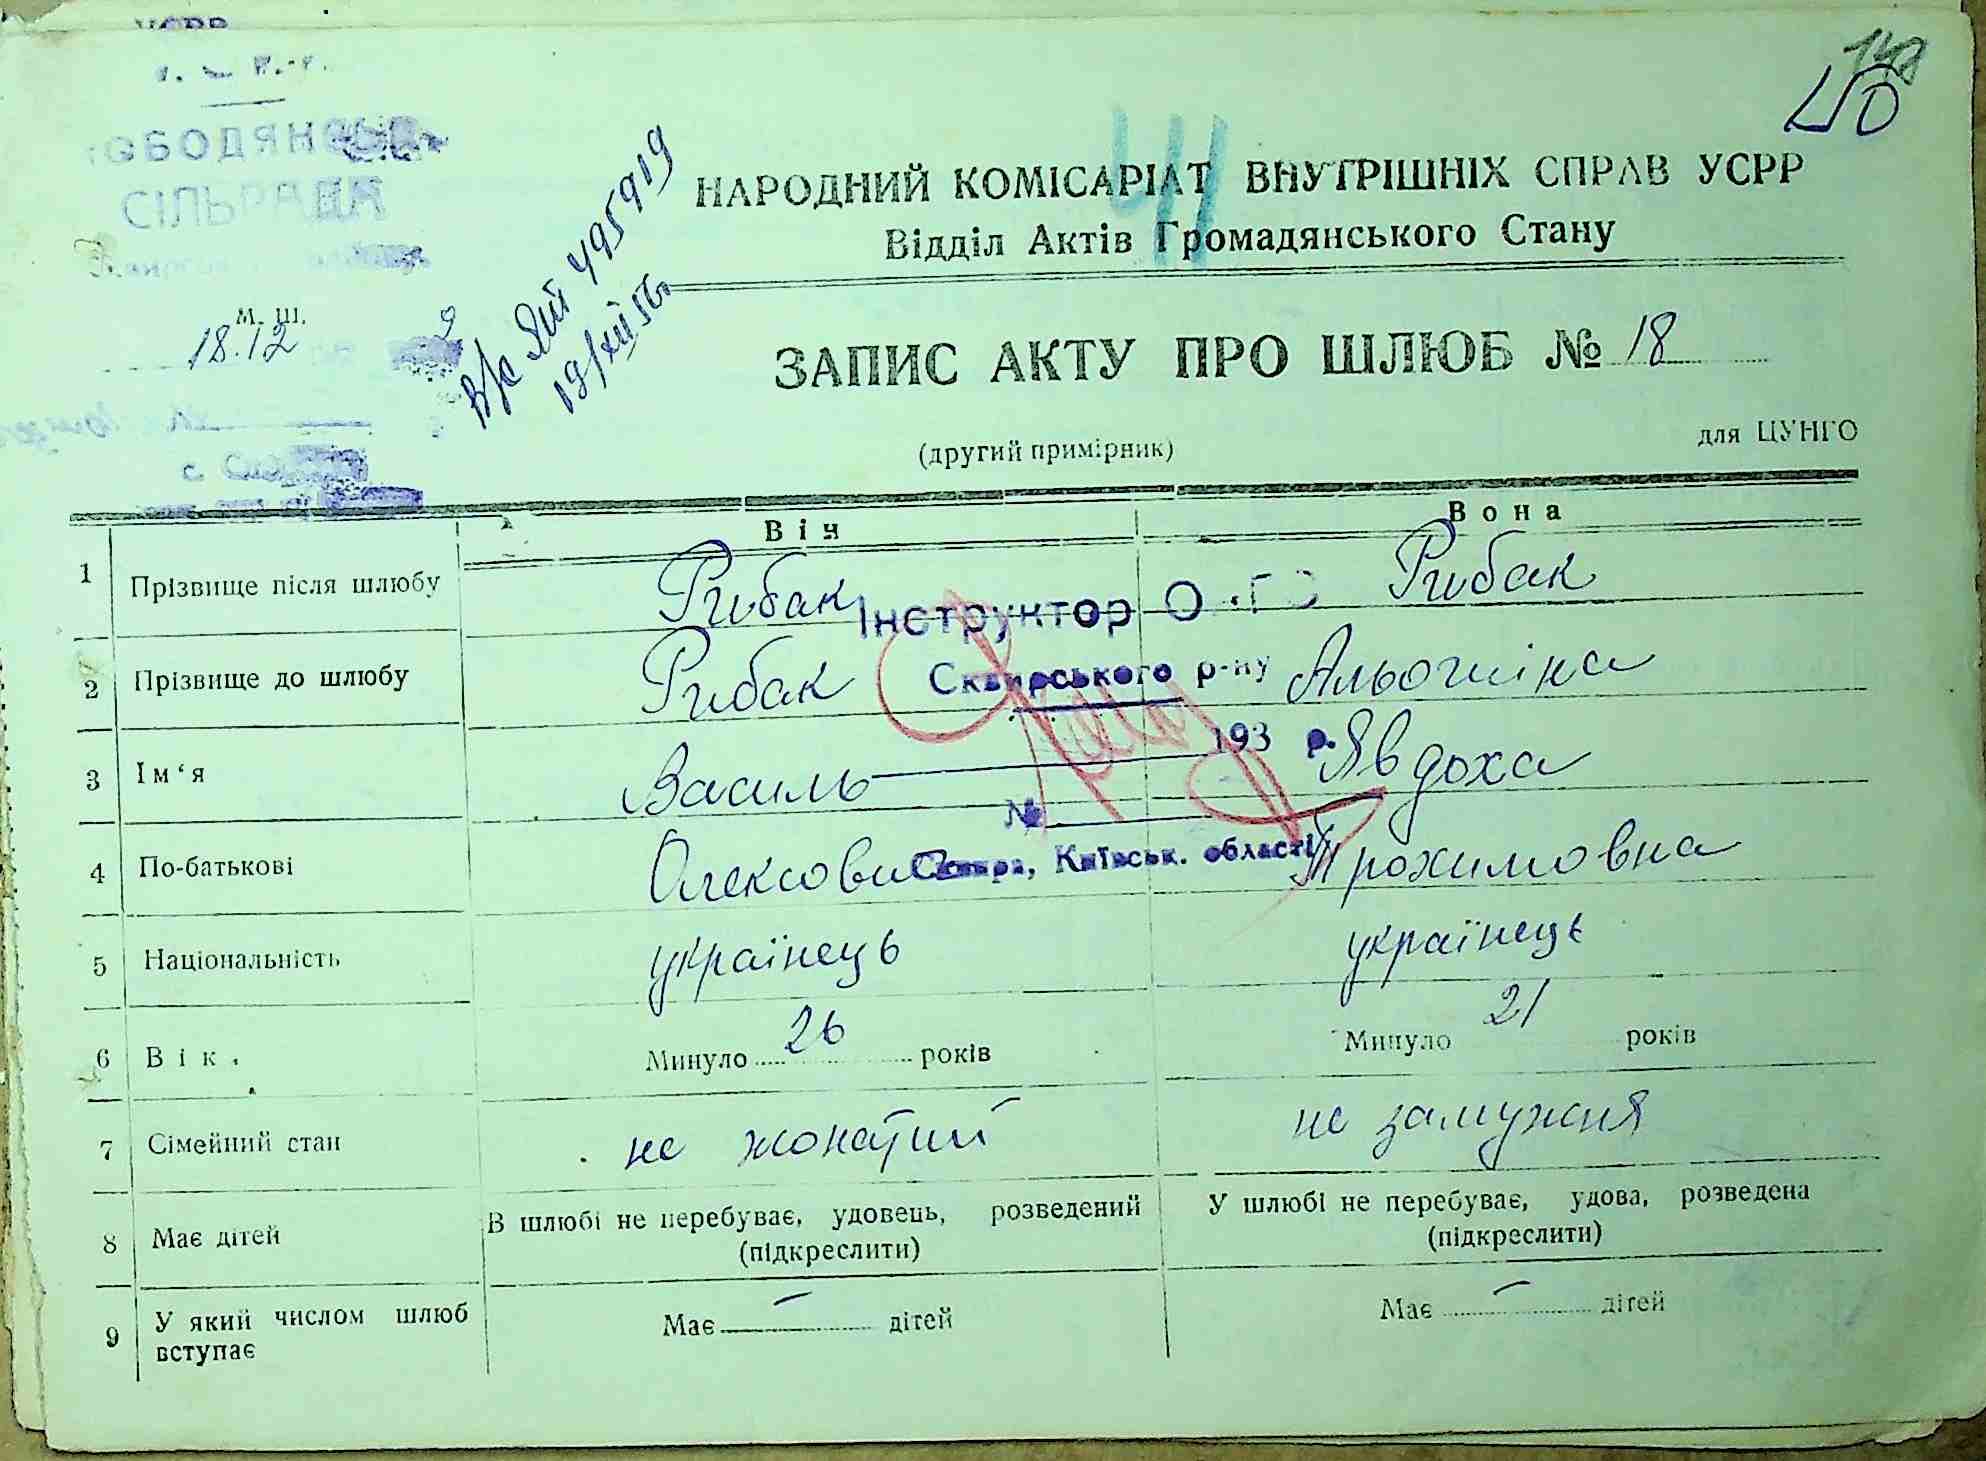 УСРР
СІЛЬРАДА
М. Ш.
18.12
в/с ЯЙ 495919
19/XII 56г.
148
40
41
НАРОДНИЙ КОМІСАРІАТ ВНУТРІШНІХ СПРАВ УСРР
Відділ Актів Громадянського Стану
ЗАПИС АКТУ ПРО ШЛЮБ № 18
(другий примірник)
для ЦУНГО
Він Вона
1 Прізвище після шлюбу Рибак Рибак
Інструктор
2 Прізвище до шлюбу Рибак Альошіна
Сквирського р-ну
193 р.
3 Ім‘я Василь Явдоха
№
4 По-батькові Олексович Трохимовна
Сквира, Київськ. області
5 Національність українець українець
6 Вік. Минуло 26 років Минуло 21 років
7 Сімейний стан не жонатий не замужня
8 Має дітей В шлюбі не перебуває, удовець, розведений (підкреслити) У шлюбі не перебуває, удова, розведена (підкреслити)
9 У який числом шлюб вступає Має — дітей Має — дітей